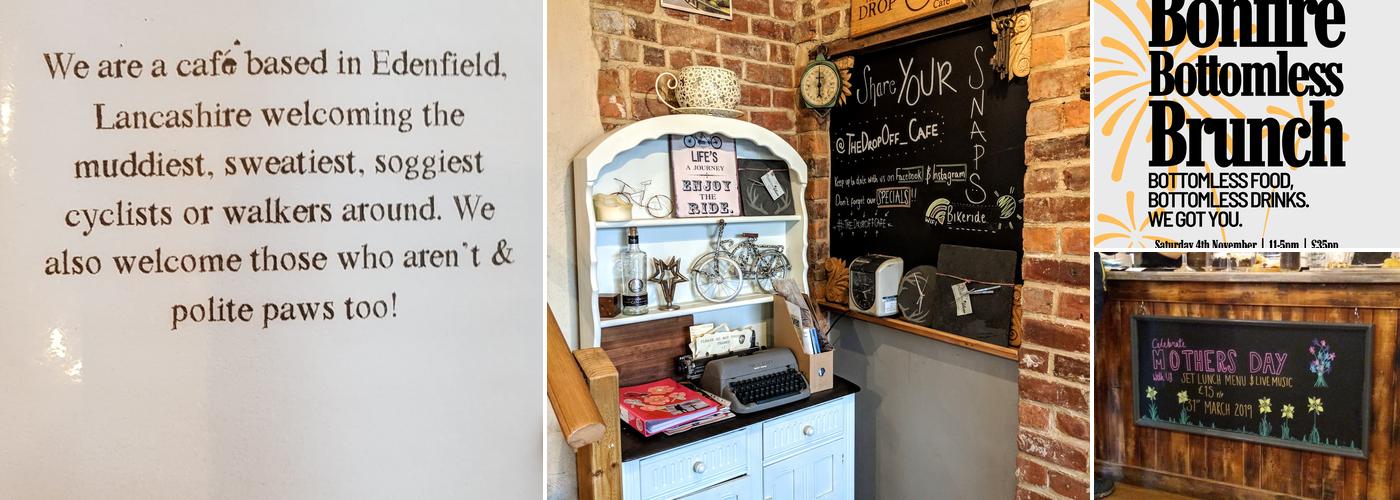 We are a café based in Edenfield,
Lancashire welcoming the
muddiest, sweatiest, soggiest
cyclists or walkers around. We
also welcome those who aren't &
polite paws too!
DROP
Cafe
Share YOUR
SNAPS
@THEDROPOFF_CAFE
Keep up to date with us on Facebook & Instagram
Don't forget our SPECIALS!!
#THEDROPOFFCAFE
WiFi
Bikeride
LIFE'S
A JOURNEY
ENJOY
THE
RIDE.
Bonfire
Bottomless
Brunch
BOTTOMLESS FOOD,
BOTTOMLESS DRINKS.
WE GOT YOU.
Saturday 4th November | 11-5pm | £35pp
Celebrate
MOTHERS DAY
with us SET LUNCH MENU & LIVE MUSIC
£15
31st MARCH 2019